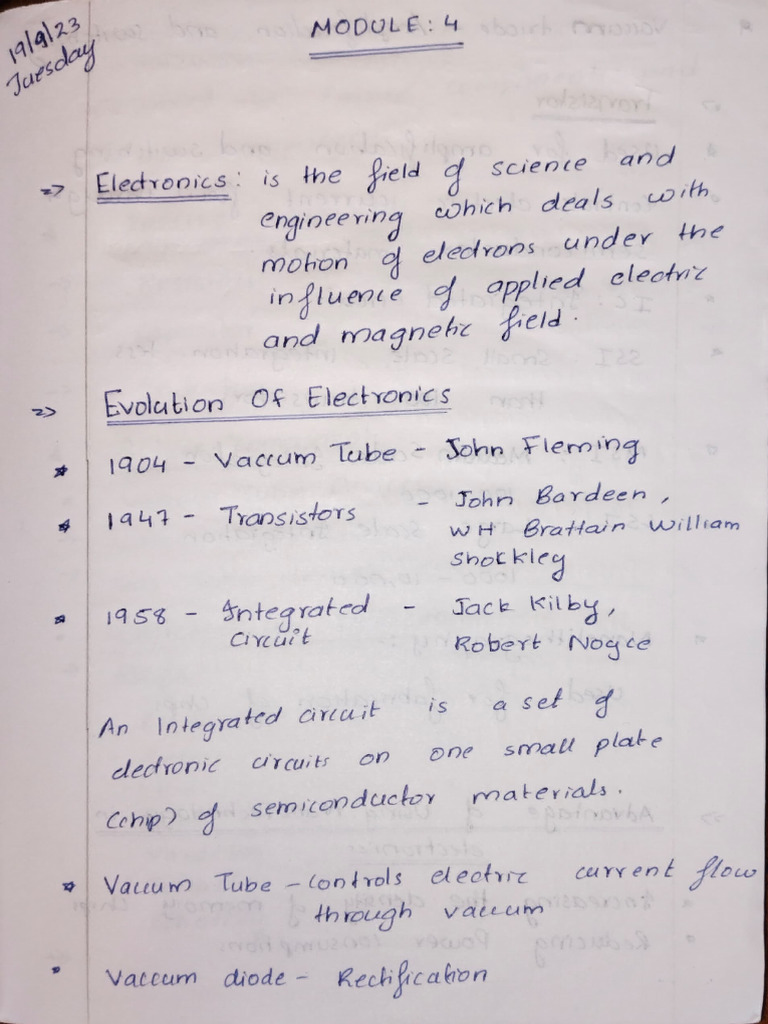 19/9/23
Tuesday
MODULE: 4
=> Electronics: is the field of science and
engineering which deals with
motion of electrons under the
influence of applied electric
and magnetic field.
=> Evolution Of Electronics
* 1904 - Vaccum Tube - John Fleming
* 1947 - Transistors - John Bardeen,
WH Brattain William
Shockley
* 1958 - Integrated - Jack Kilby,
circuit Robert Noyce
An Integrated circuit is a set of
electronic circuits on one small plate
(chip) of semiconductor materials.
* Vaccum Tube - controls electric current flow
through vaccum
* Vaccum diode - Rectification